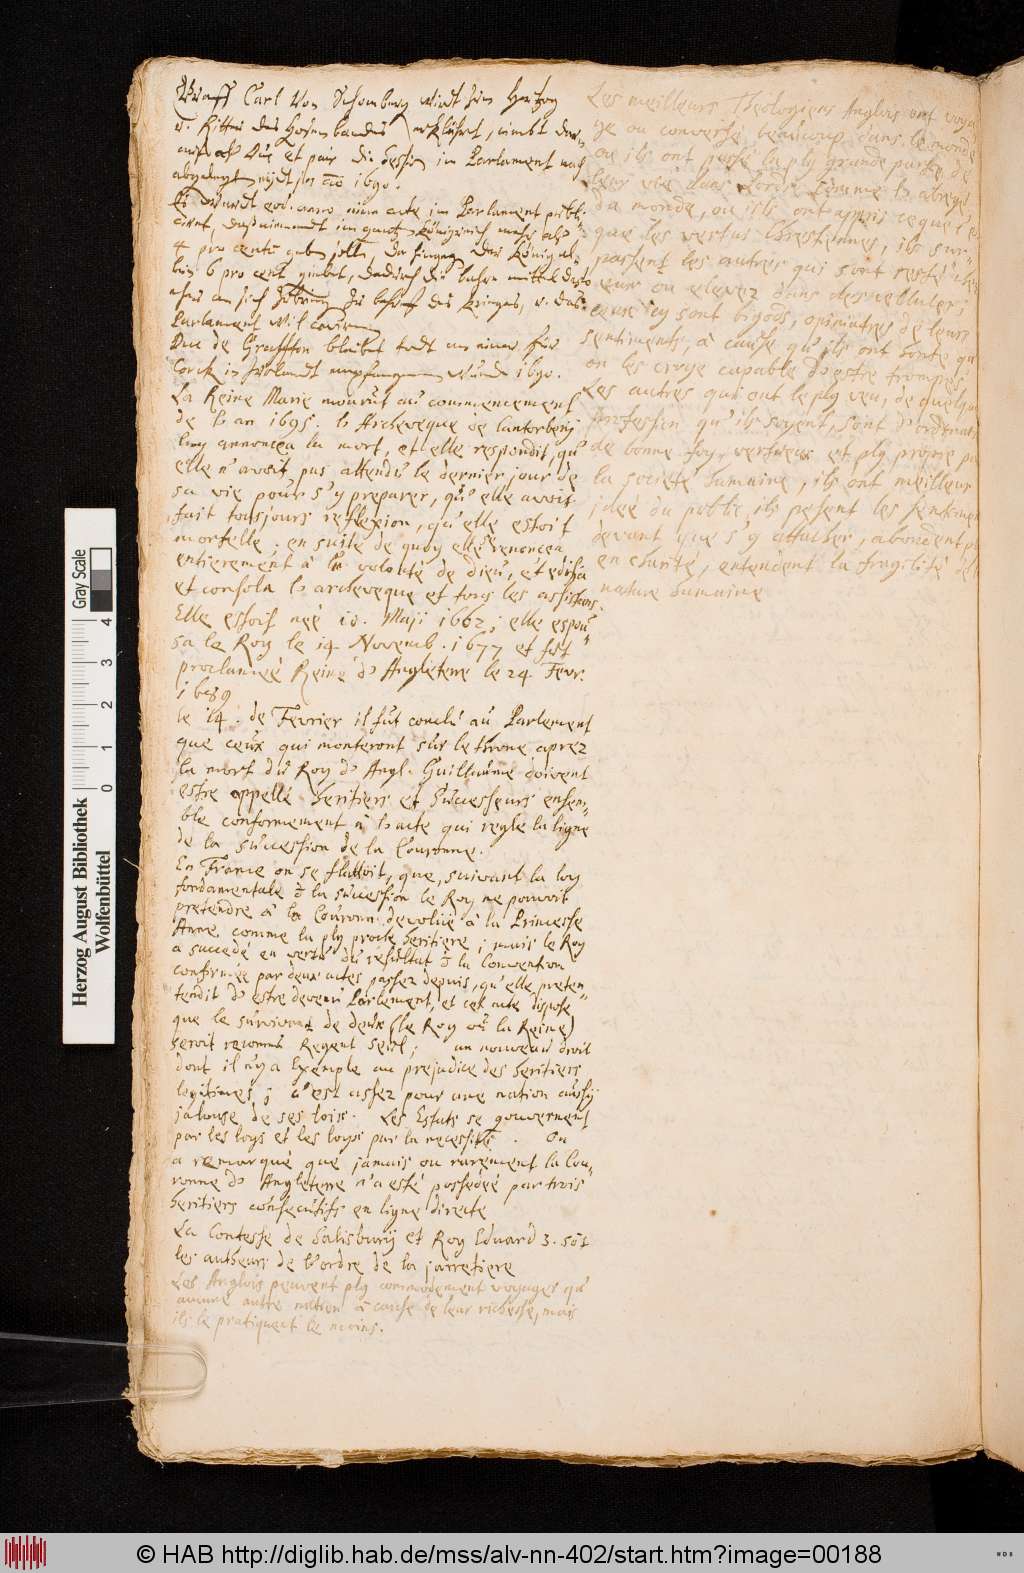 Graff Carl Von Schomberg wirdt zum Hertzog
v. Ritter des Hosenbandes erklährt, nimbt
auch Duc et pair die Session im Parlament nach
abgelegt eydt in aõ 1690.
Es wurdt eod. anno eine acte im Parlament publi-
cirt, daß niemandt im gantz Königreich mehr als
4 pro cento geben solle, da hingeg. der König al-
lein 6 pro cent giebet, dadurch die bahre mittel desto
eher an sich zu bring. zu behuf des Krieges, v. das
Parlament wil
Duc de Graffton bleibet todt an einer für
Corck in Irlandt empfangenen Wunde 1690.
La Reine Marie mourut au commencement
de l'an 1695. l'Archeveque de Cantorbery
luy annonçea la mort, et elle respondit, qu'
elle n'avoit pas attendu le dernier jour de
sa vie pour s'y preparer, qu'elle avoit
fait tousjours reflexion, qu'elle estoit
mortelle. en suite de quoy elle renoncea
entierement à la volonté de Dieu, et edifia
et consola l'archeveque et tous les assistans.
Elle estoit née 10. Maji 1662; elle espou-
sa le Roy le 14 Novemb. 1677 et fut
proclamée Reine d'Angleterre le 24 Fevr.
1689
le 14. de Fevrier il fut conclu au Parlement
que ceux qui monteront sur le throne aprez
la mort du Roy d'Angl. Guillaume doivent
estre appellé heritiers et successeurs ensem-
ble conformement à l'acte qui regle la ligne
de la succession de la Couronne.
En France on se flattoit, que, suivant la loy
fondamentale de la succession le Roy ne pouvoit
pretendre à la Couronne devoluë à la Princesse
Anne, comme la plg proche heritiere; mais le Roy
a succedé en vertu du resultat de la Convention
confirmée par deux actes passez depuis, qu'elle preten-
tendit d'estre devenu Parlement, et cet acte dispose
que le survivant de deux (le Roy ou la Reine)
seroit reconnu Regent seul; un nouveau droit
dont il n'y a Exemple au prejudice des heritiers
legitimes; c'est assez pour une nation aussy
jalouse de ses loix. Les Estats se gouvernent
par les loys et les loys par la necessité. On
a remarqué que jamais ou rarement la Cou-
ronne d'Angleterre n'a esté possedée par trois
heritiers consecutifs en ligne directe
La Contesse de Salisbury et Roy Eduard 3. sõt
les autheurs de l'ordre de la jarretiere
Les Anglois peuvent plg commodement voyager qu'
aucune autre nation à cause de leur richesse, mais
ils le pratiquent le moins.
Les meilleurs Theologiens Anglois ont voya-
gé ou conversé beaucoup dans le monde
où ils ont passé la plg grande partie de
leur vie dans Londr. comme l'abregé
du monde, où ils ont appris ce que c'est
que les vertus Chrestiennes, ils sur-
passent les autres qui sont resté
ou elevez dans des cellules;
ceux icy sont bigots, opiniatres de leurs
sentiments, à cause qu'ils ont honte qu'
on les croye capable d'estre trompés,
Les autres qui ont le plg veu, de quelque
profession qu'ils soyent, sont d'ordinaire
de bonne foy, vertueux et plg propre pour
la societé humaine, ils ont meilleur
idée du public, ils pesent les sentimens
devant que s'y attacher, abondent plg
en charité, entendent la fragilité de
nature humaine
Gray Scale
0 1 2 3 4
Herzog August Bibliothek
Wolfenbüttel
© HAB http://diglib.hab.de/mss/alv-nn-402/start.htm?image=00188